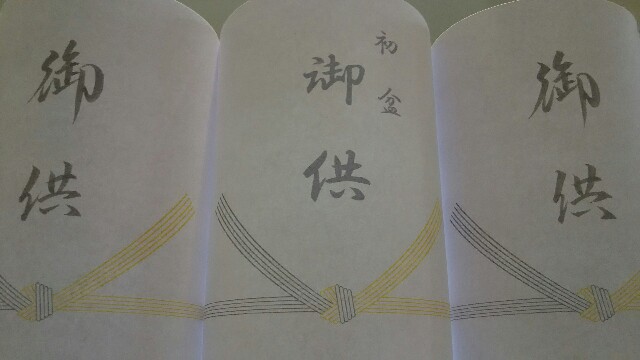 御供
初盆
御供
御供